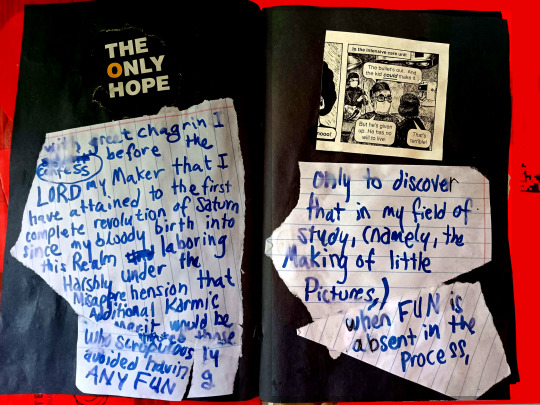 THE
ONLY
HOPE
with great chagrin I
confess before the
LORD my Maker that I
have attained to the first
complete revolution of Saturn
since my bloody birth into
this Realm laboring
Harshly under the
Misapprehension that
Additional Karmic
merit would be
who scrupulously
avoided having
ANY FUN
In the intensive care unit:
The bullet's out. And
the kid could make it.
But he's given
up. He has no
will to live!
That's
terrible!
only to discover
that in my field of
study, (namely, the
Making of little
Pictures,)
when FUN is
absent in the
Process,